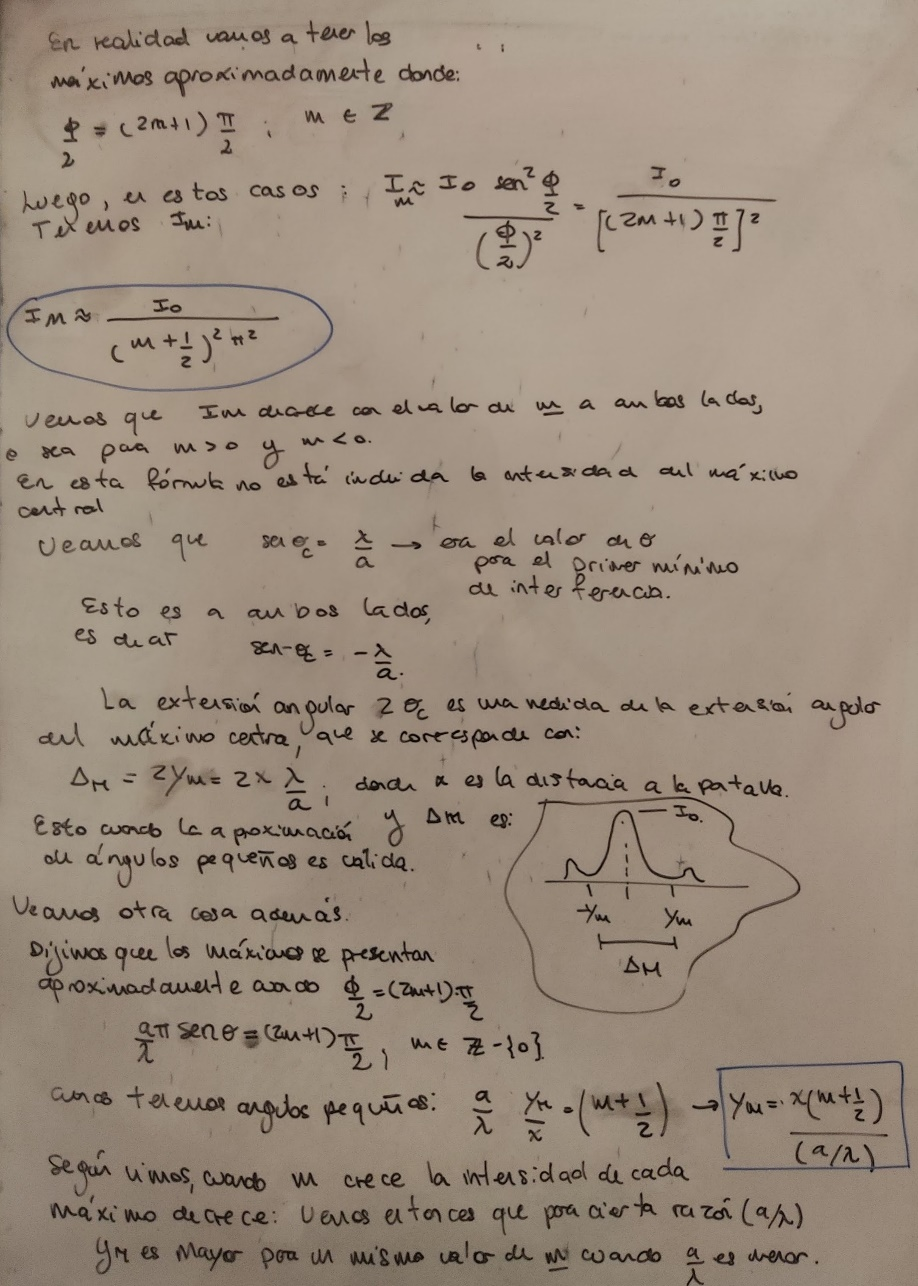 En realidad vamos a tener los
máximos aproximadamente donde:
Φ/2 = (2m+1) π/2 ; m ∈ Z
Luego, en estos casos : Im ≈ I0 sen² Φ/2 / (Φ/2)² = I0 / [(2m+1) π/2]²
Tenemos Im:
Im ≈ I0 / (m + 1/2)² π²
Vemos que Im decrece con el valor de m a ambos lados,
o sea para m > 0 y m < 0.
En esta fórmula no está incluida la intensidad del máximo
central
Veamos que sen θc = λ/a → era el valor de θ
para el primer mínimo
de interferencia.
Esto es a ambos lados,
es decir sen -θc = -λ/a.
La extensión angular 2 θc es una medida de la extensión angular
del máximo central, que se corresponde con:
ΔM = 2ym = 2x λ/a ; donde x es la distancia a la pantalla.
Esto cuando la aproximación y ΔM es:
de ángulos pequeños es valida.
I0.
-ym ym
ΔM
Veamos otra cosa además.
Dijimos que los máximos se presentan
aproximadamente cuando Φ/2 = (2m+1).π/2
aπ/λ sen θ = (2m+1) π/2 , m ∈ Z - {0}
como tenemos angulos pequeños: a/λ ym/x = (m + 1/2) → ym = x(m + 1/2) / (a/λ)
Según vimos, cuando m crece la intensidad de cada
máximo decrece: Vemos entonces que para cierta razón (a/λ)
ym es mayor para un mismo valor de m cuando a/λ es menor.